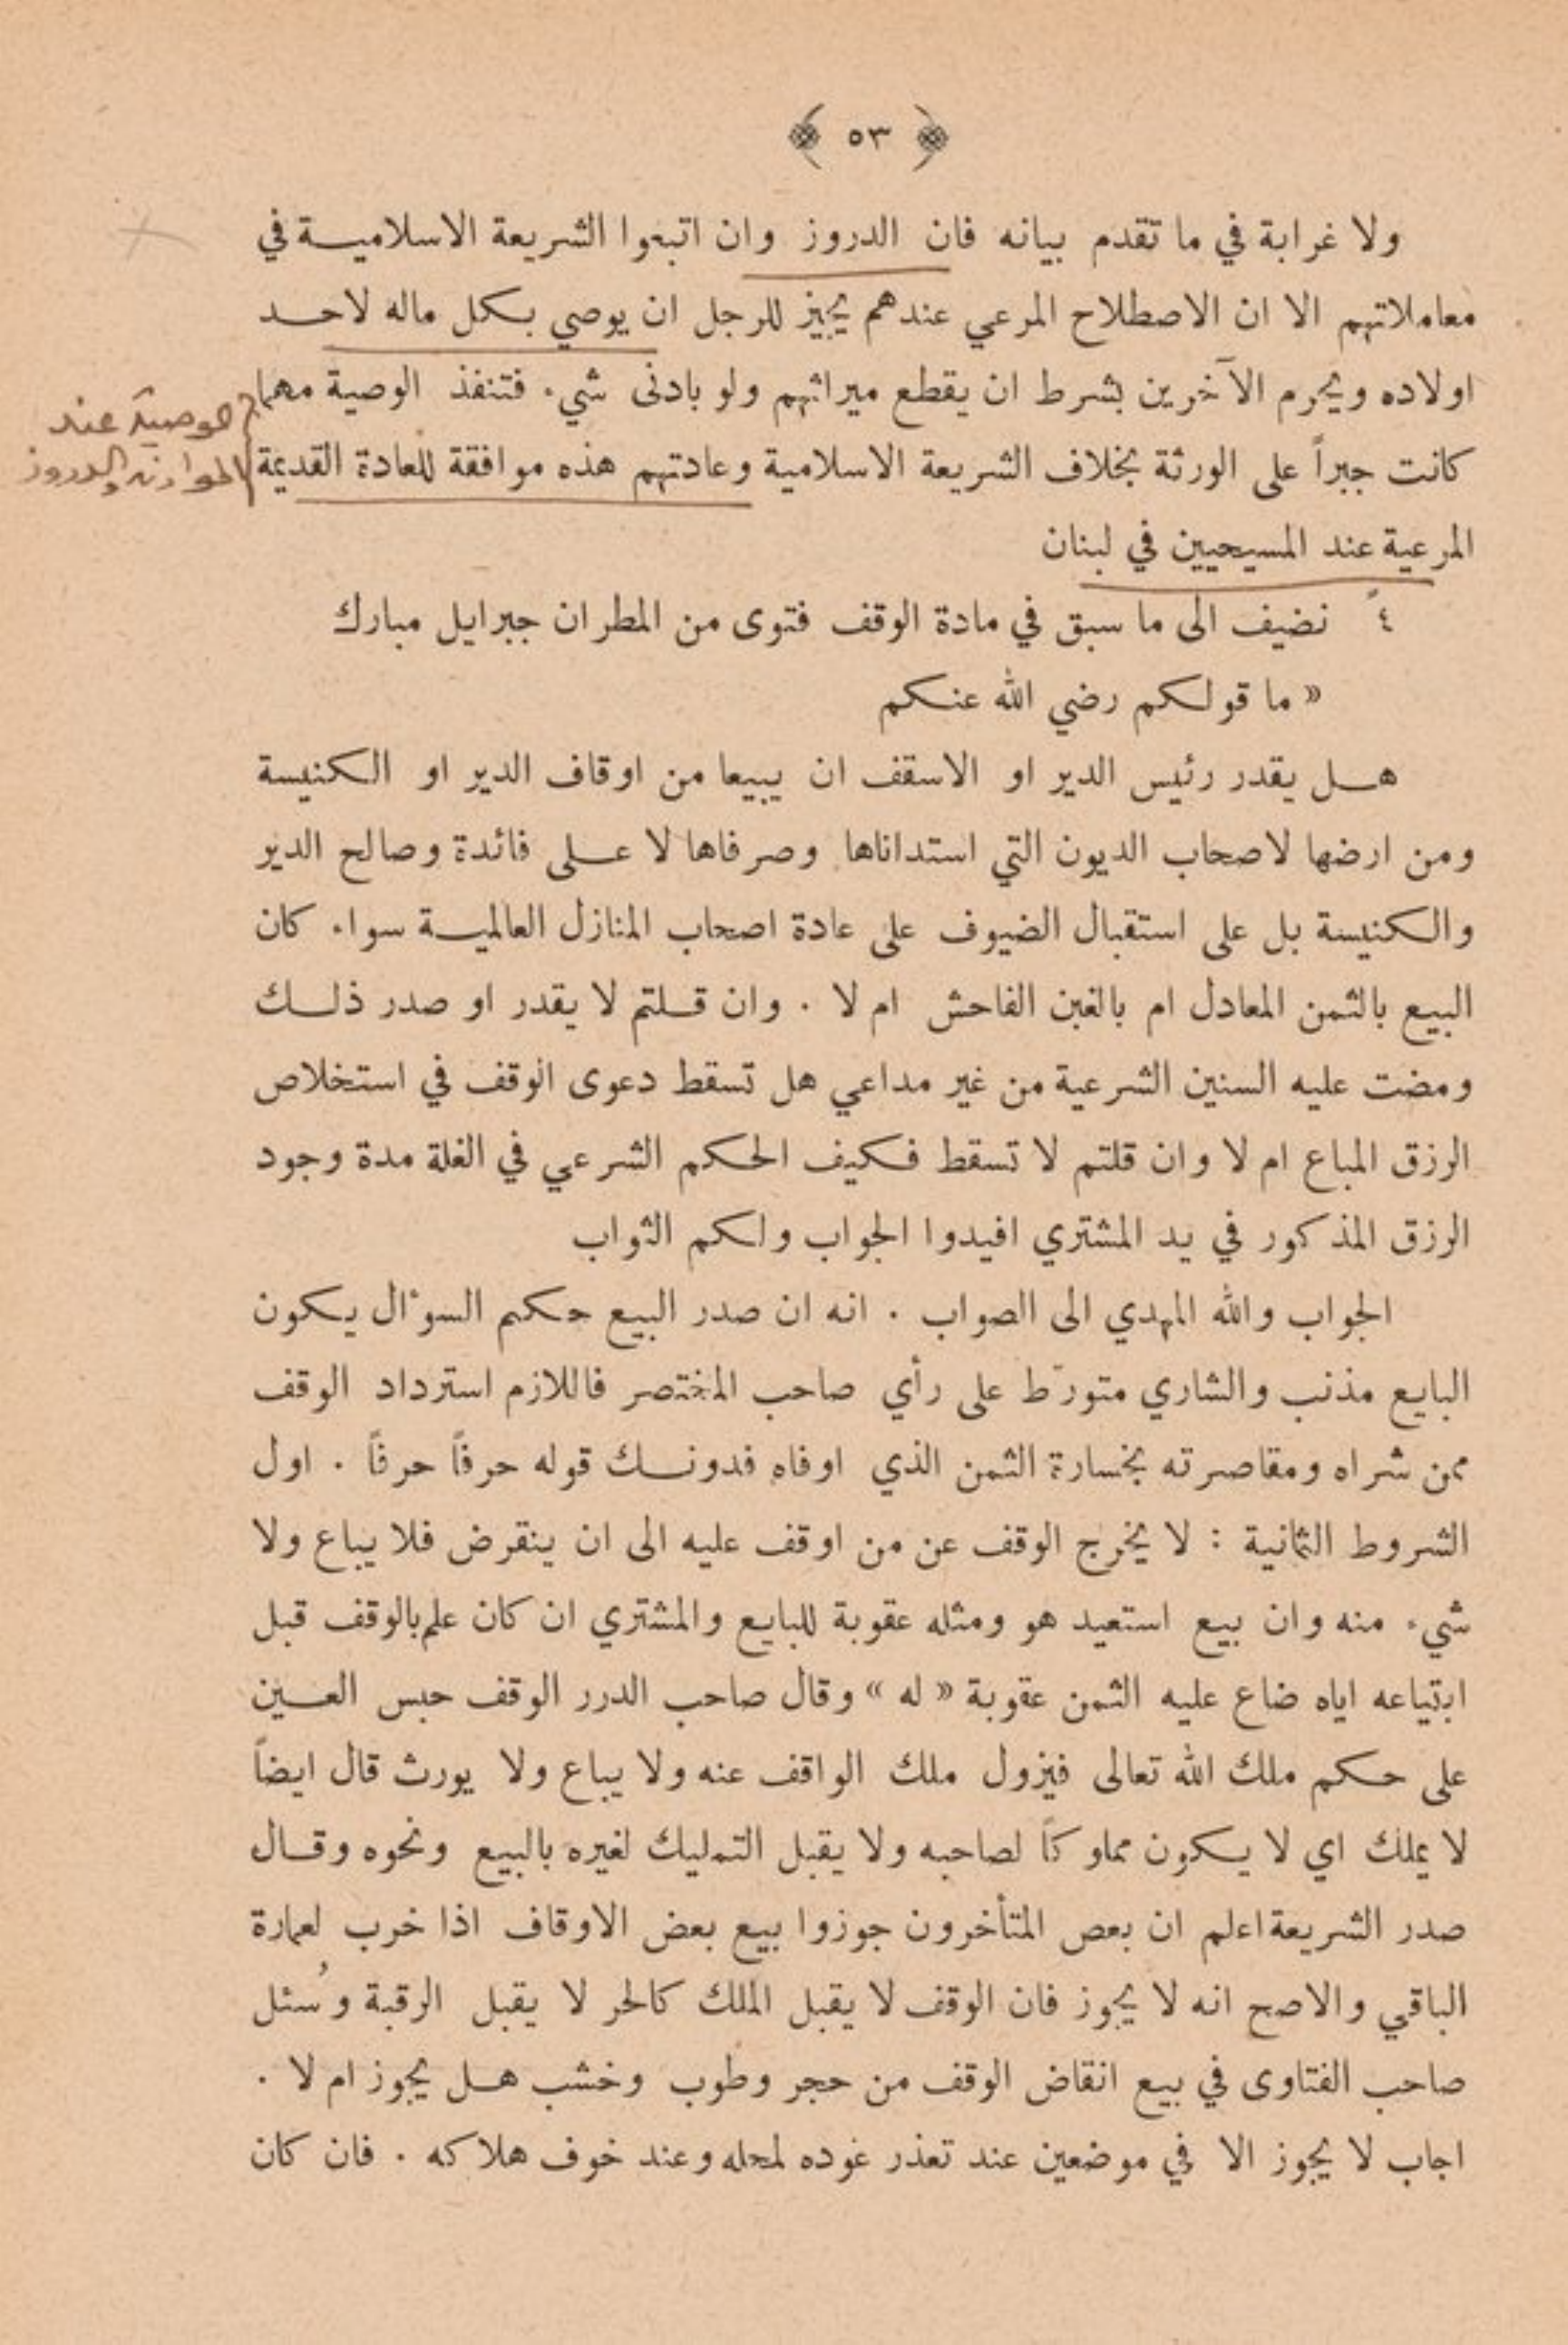 ﴿ ٥٣ ﴾
ولا غرابة في ما تقدم بيانه فان الدروز وان اتبعوا الشريعة الاسلاميـــة في
معاملاتهم الا ان الاصطلاح المرعي عندهم يجيز للرجل ان يوصي بـكل ماله لاحـــد
اولاده ويحرم الآخرين بشرط ان يقطع ميراثهم ولو بادنى شيء فتنفذ الوصية مهما
كانت جبراً على الورثة بخلاف الشريعة الاسلامية وعادتهم هذه موافقة للعادة القديمة
الوصية عند
الموارنه والدروز
المرعية عند المسيحيين في لبنان
٤ً نضيف الى ما سبق في مادة الوقف فتوى من المطران جبرايل مبارك
« ما قولـكم رضي الله عنـكم
هـــل يقدر رئيس الدير او الاسقف ان يبيعا من اوقاف الدير او الـكنيسة
ومن ارضها لاصحاب الديون التي استداناها وصرفاها لا عـــلى فائدة وصالح الدير
والـكنيسة بل على استقبال الضيوف على عادة اصحاب المنازل العالميـــة سواء كان
البيع بالثمن المعادل ام بالغبن الفاحش ام لا . وان قـــلتم لا يقدر او صدر ذلـــك
ومضت عليه السنين الشرعية من غير مداعي هل تسقط دعوى الوقف في استخلاص
الرزق المباع ام لا وان قلتم لا تسقط فـكيف الحـكم الشرعي في الغلة مدة وجود
الرزق المذكور في يد المشتري افيدوا الجواب ولـكم الثواب
الجواب والله المهدي الى الصواب . انه ان صدر البيع حـكم السوءال يـكون
البايع مذنب والشاري متورّط على رأي صاحب المختصر فاللازم استرداد الوقف
ممن شراه ومقاصرته بخسارة الثمن الذي اوفاه فدونـــك قوله حرفاً حرفاً . اول
الشروط الثمانية : لا يخرج الوقف عن من اوقف عليه الى ان ينقرض فلا يباع ولا
شيء منه وان بيع استعيد هو ومثله عقوبة للبايع والمشتري ان كان علم بالوقف قبل
ابتياعه اياه ضاع عليه الثمن عقوبة « له » وقال صاحب الدرر الوقف حبس العـــين
على حـكم ملك الله تعالى فيزول ملك الواقف عنه ولا يباع ولا يورث قال ايضاً
لا يملك اي لا يـكون مملوكاً لصاحبه ولا يقبل التمليك لغيره بالبيع ونحوه وقـــال
صدر الشريعة اعلم ان بعص المتأخرون جوزوا بيع بعض الاوقاف اذا خرب لعمارة
الباقي والاصح انه لا يجوز فان الوقف لا يقبل الملك كالحر لا يقبل الرقبة وسُئل
صاحب الفتاوى في بيع انقاض الوقف من حجر وطوب وخشب هـــل يجوز ام لا .
اجاب لا يجوز الا في موضعين عند تعذر عوده لمحله وعند خوف هلاكه . فان كان